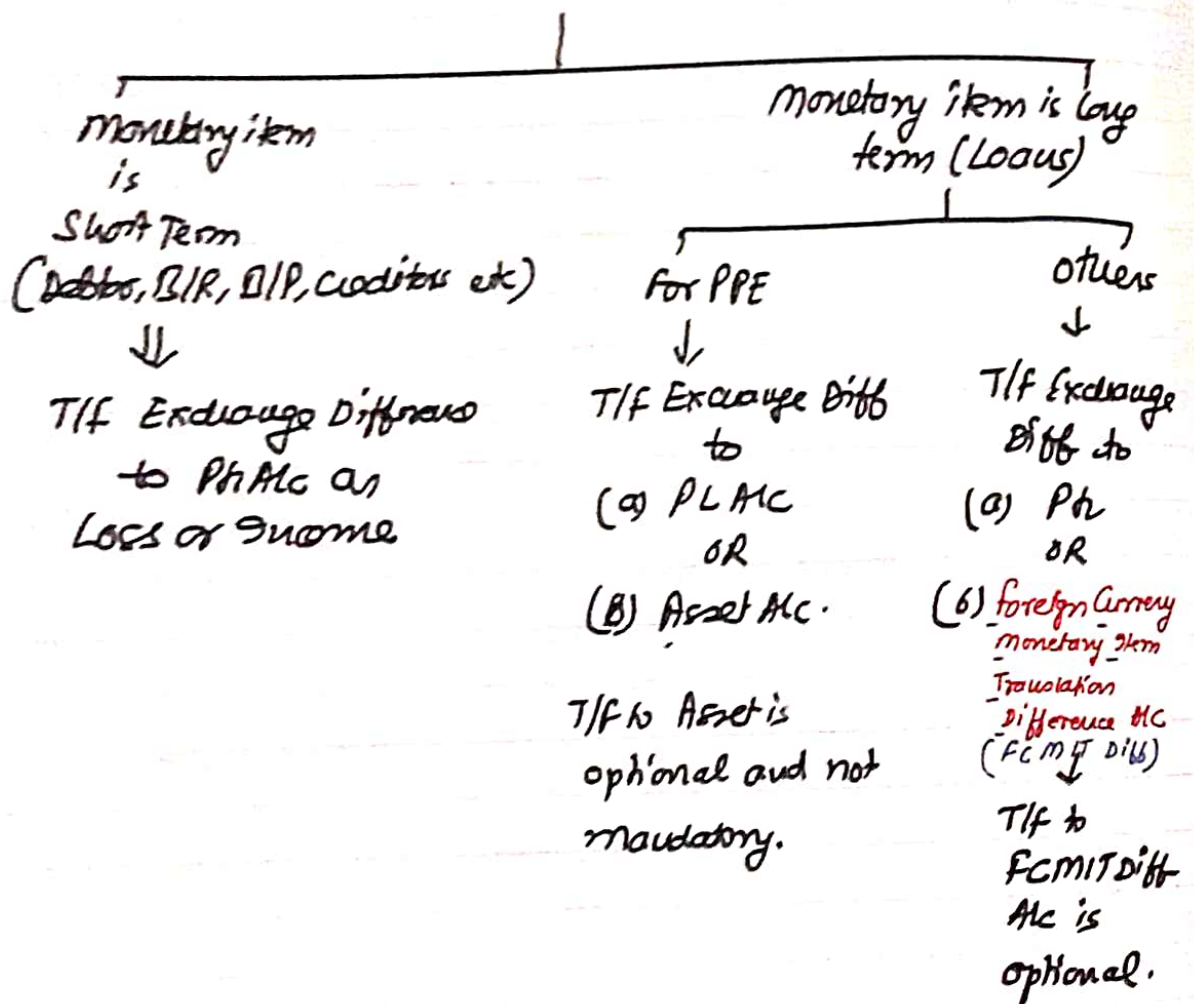 Monetary item
is
Short Term
(Debtor, B/R, B/P, Creditors etc)
⇓
T/f Exchange Difference
to P&L A/c as
Loss or Income
Monetary item is long
term (Loans)
For PPE
↓
T/f Exchange Diff
to
(a) PL A/C
OR
(B) Asset A/c.
T/f to Asset is
optional and not
mandatory.
others
↓
T/f Exchange
Diff to
(a) PL
OR
(b) Foreign Currency
Monetary Item
Translation
Difference A/C
(FCMIT Diff)
↓
T/f to
FCMIT Diff
A/c is
optional.